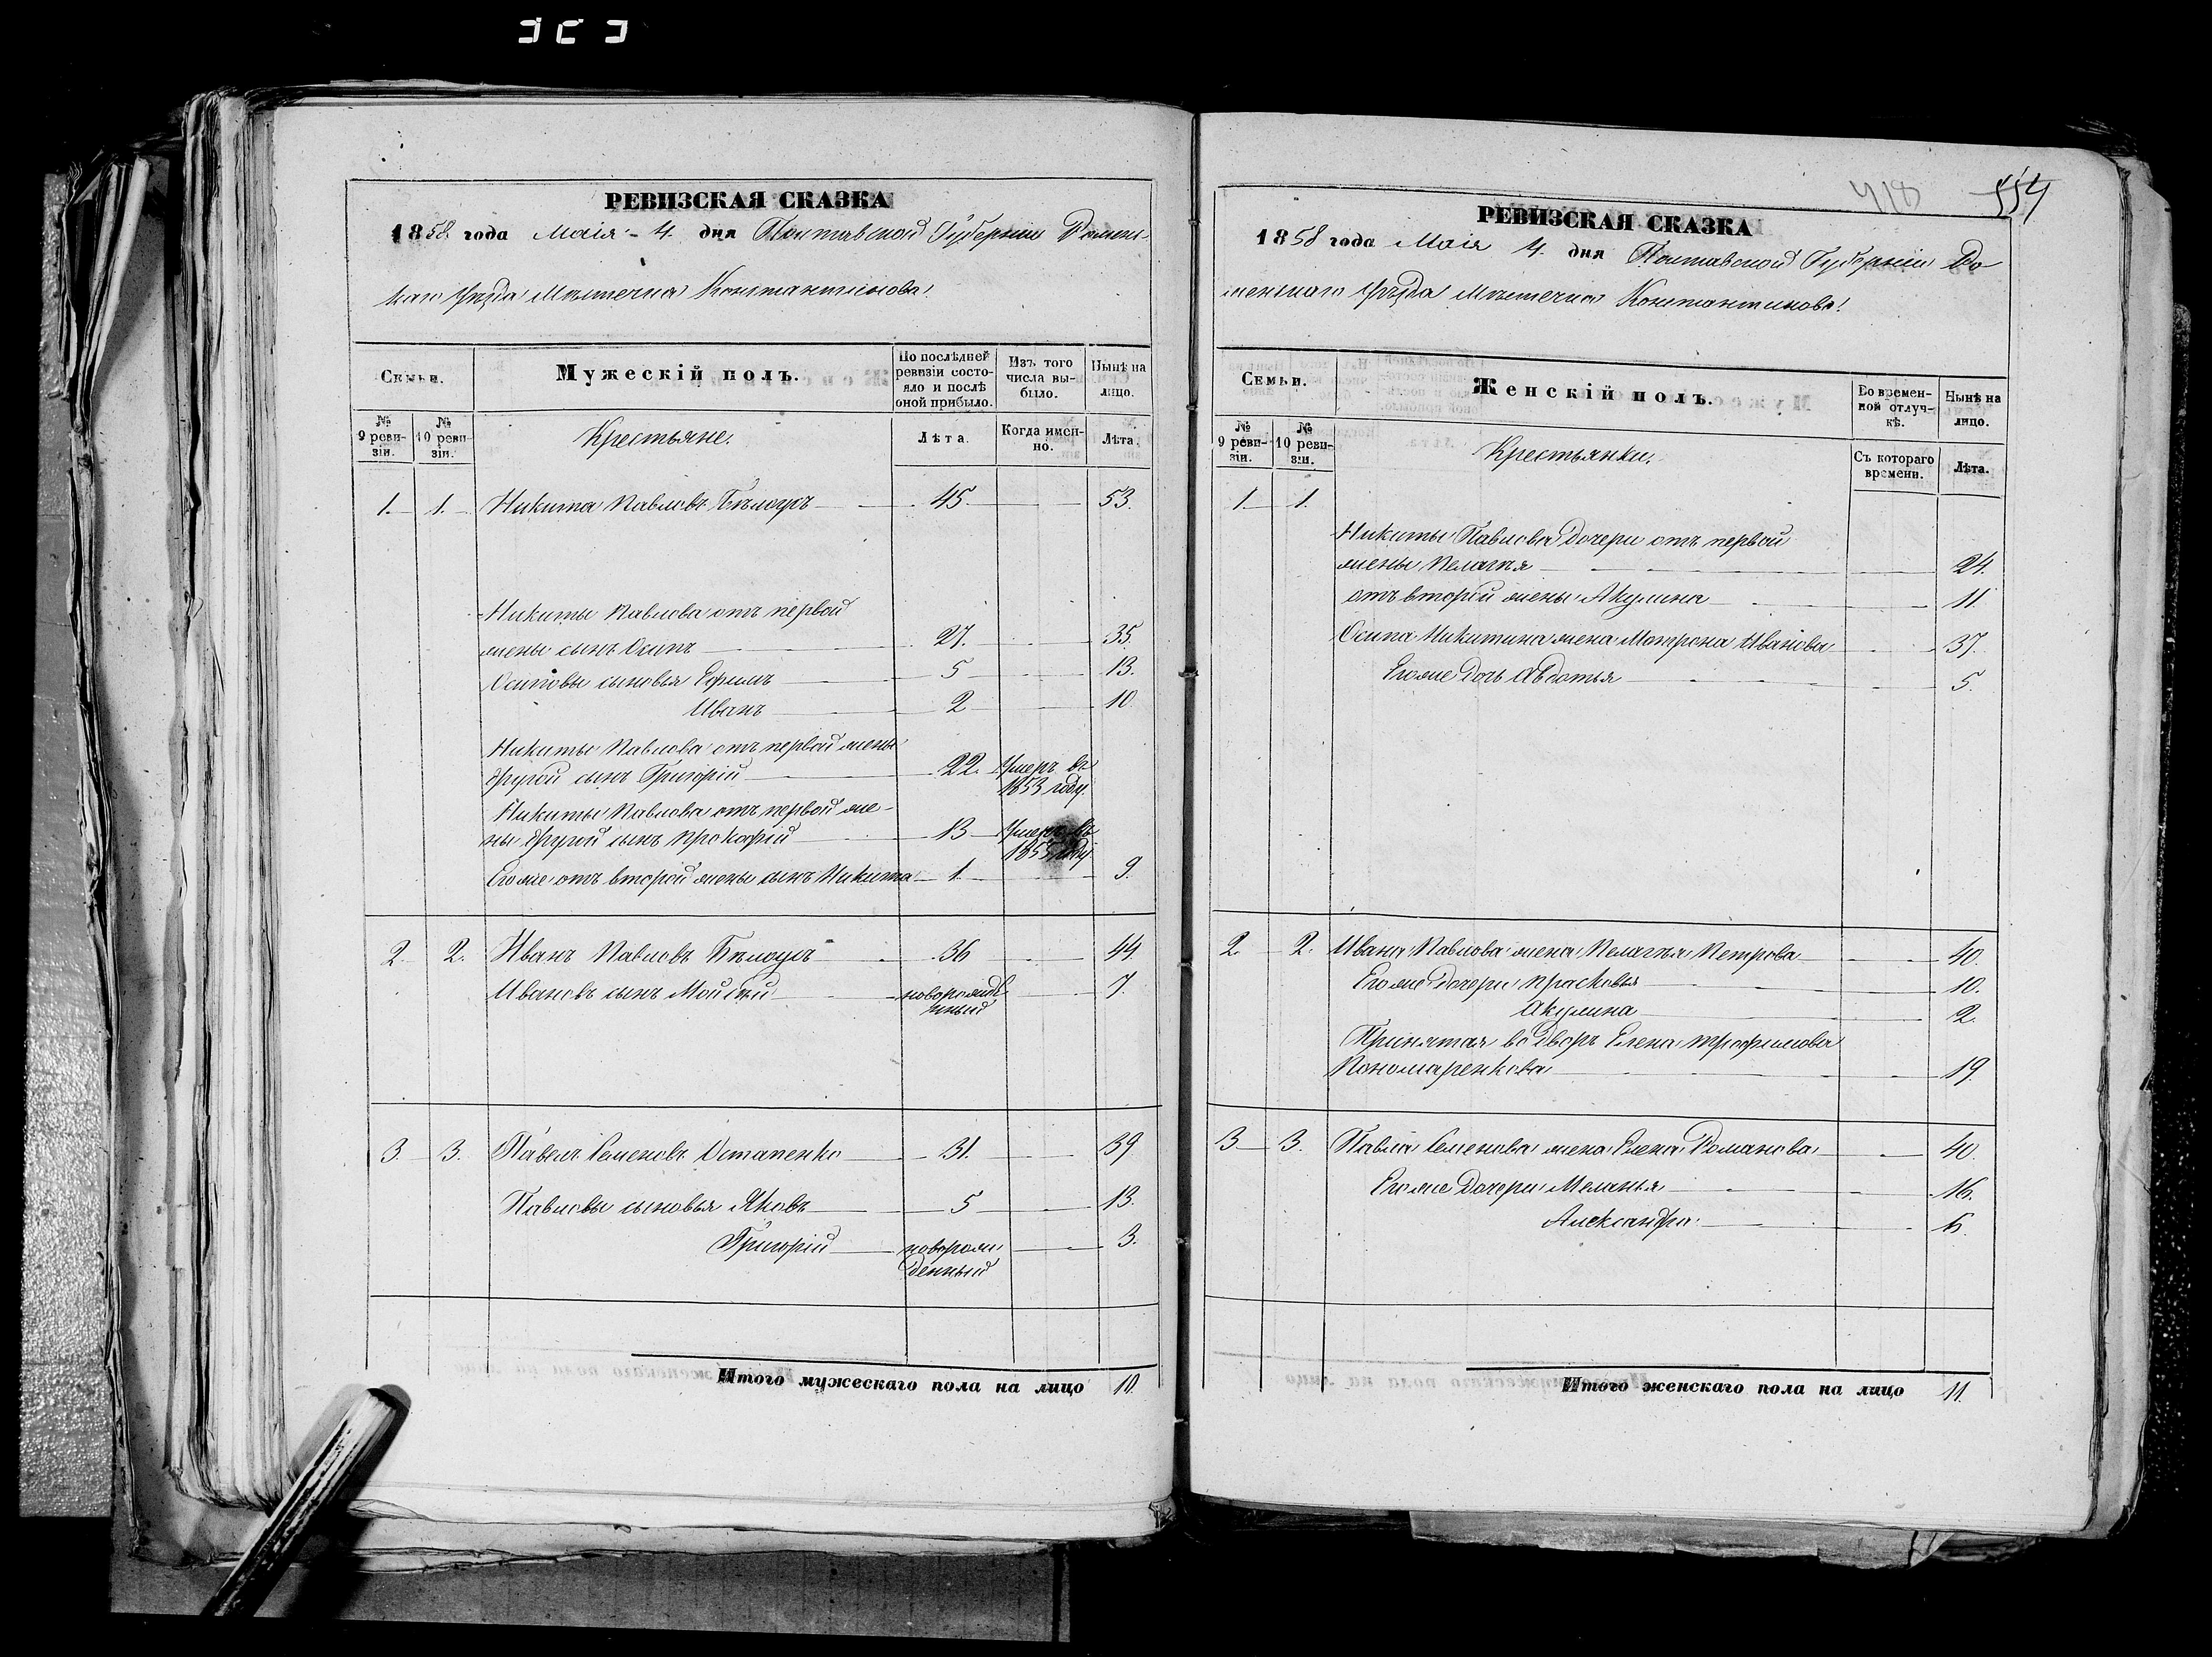 РЕВИЗСКАЯ СКАЗКА
1858 года Маія 4 дня Полтавской Губерніи Роменс-
каго Уѣзда Мѣстечка Константинова.
Семьи.
Мужескій полъ.
По послѣдней ревизіи состояло и послѣ оной прибыло.
Изъ того числа выбыло.
Нынѣ на лицо.
№ 9 ревизіи.
№ 10 ревизіи.
Крестьяне.
Лѣта.
Когда именно.
Лѣта.
1. 1. Никита Павловъ Бѣлоусъ 45. 53.
Никиты Павлова отъ первой
жены сынъ Осипъ 27. 35.
Осиповы сыновья Ефимъ 5 13.
Иванъ 2 10
Никиты Павлова отъ первой жены
другой сынъ Григорій 22. Умеръ въ
1853 году.
Никиты Павлова отъ первой же-
ны другой сынъ Прокофій 13 Умеръ въ
1855 году
Его же отъ второй жены сынъ Никита 1 9.
2. 2. Иванъ Павловъ Бѣлоусъ 36 44.
Ивановъ сынъ Мойсей новорожде
нный 7.
3. 3. Павелъ Семеновъ Остапенко 31. 39
Павловы сыновья Яковъ 5 13.
Григорій новорож
денный 3.
Итого мужескаго пола на лицо 10.
418 554
РЕВИЗСКАЯ СКАЗКА
1858 года Маія 4. дня Полтавской Губерніи Ро
менскаго Уѣзда Мѣстечка Константинова.
Семьи.
Женскій полъ.
Во временной отлучкѣ.
Нынѣ на лицо.
№ 9 ревизіи.
№ 10 ревизіи.
Крестьянки.
Съ котораго времени.
Лѣта.
1. 1.
Никиты Павлова дочери отъ первой
жены Пелагѣя 24.
отъ второй жены Акулина 11.
Осипа Никитина жена Мотрона Иванова 37.
Его же дочь Авдотья 5.
2. 2. Ивана Павлова жена Пелагѣя Петрова 40.
Его же дочери Прасковья 10.
Акулина 2.
Принятая во дворъ Елена Трофимова
Пономаренкова 19.
3. 3. Павла Семенова жена Елена Романова 40.
Его же дочери Меланья 16.
Александра 6.
Итого женскаго пола на лицо 11.